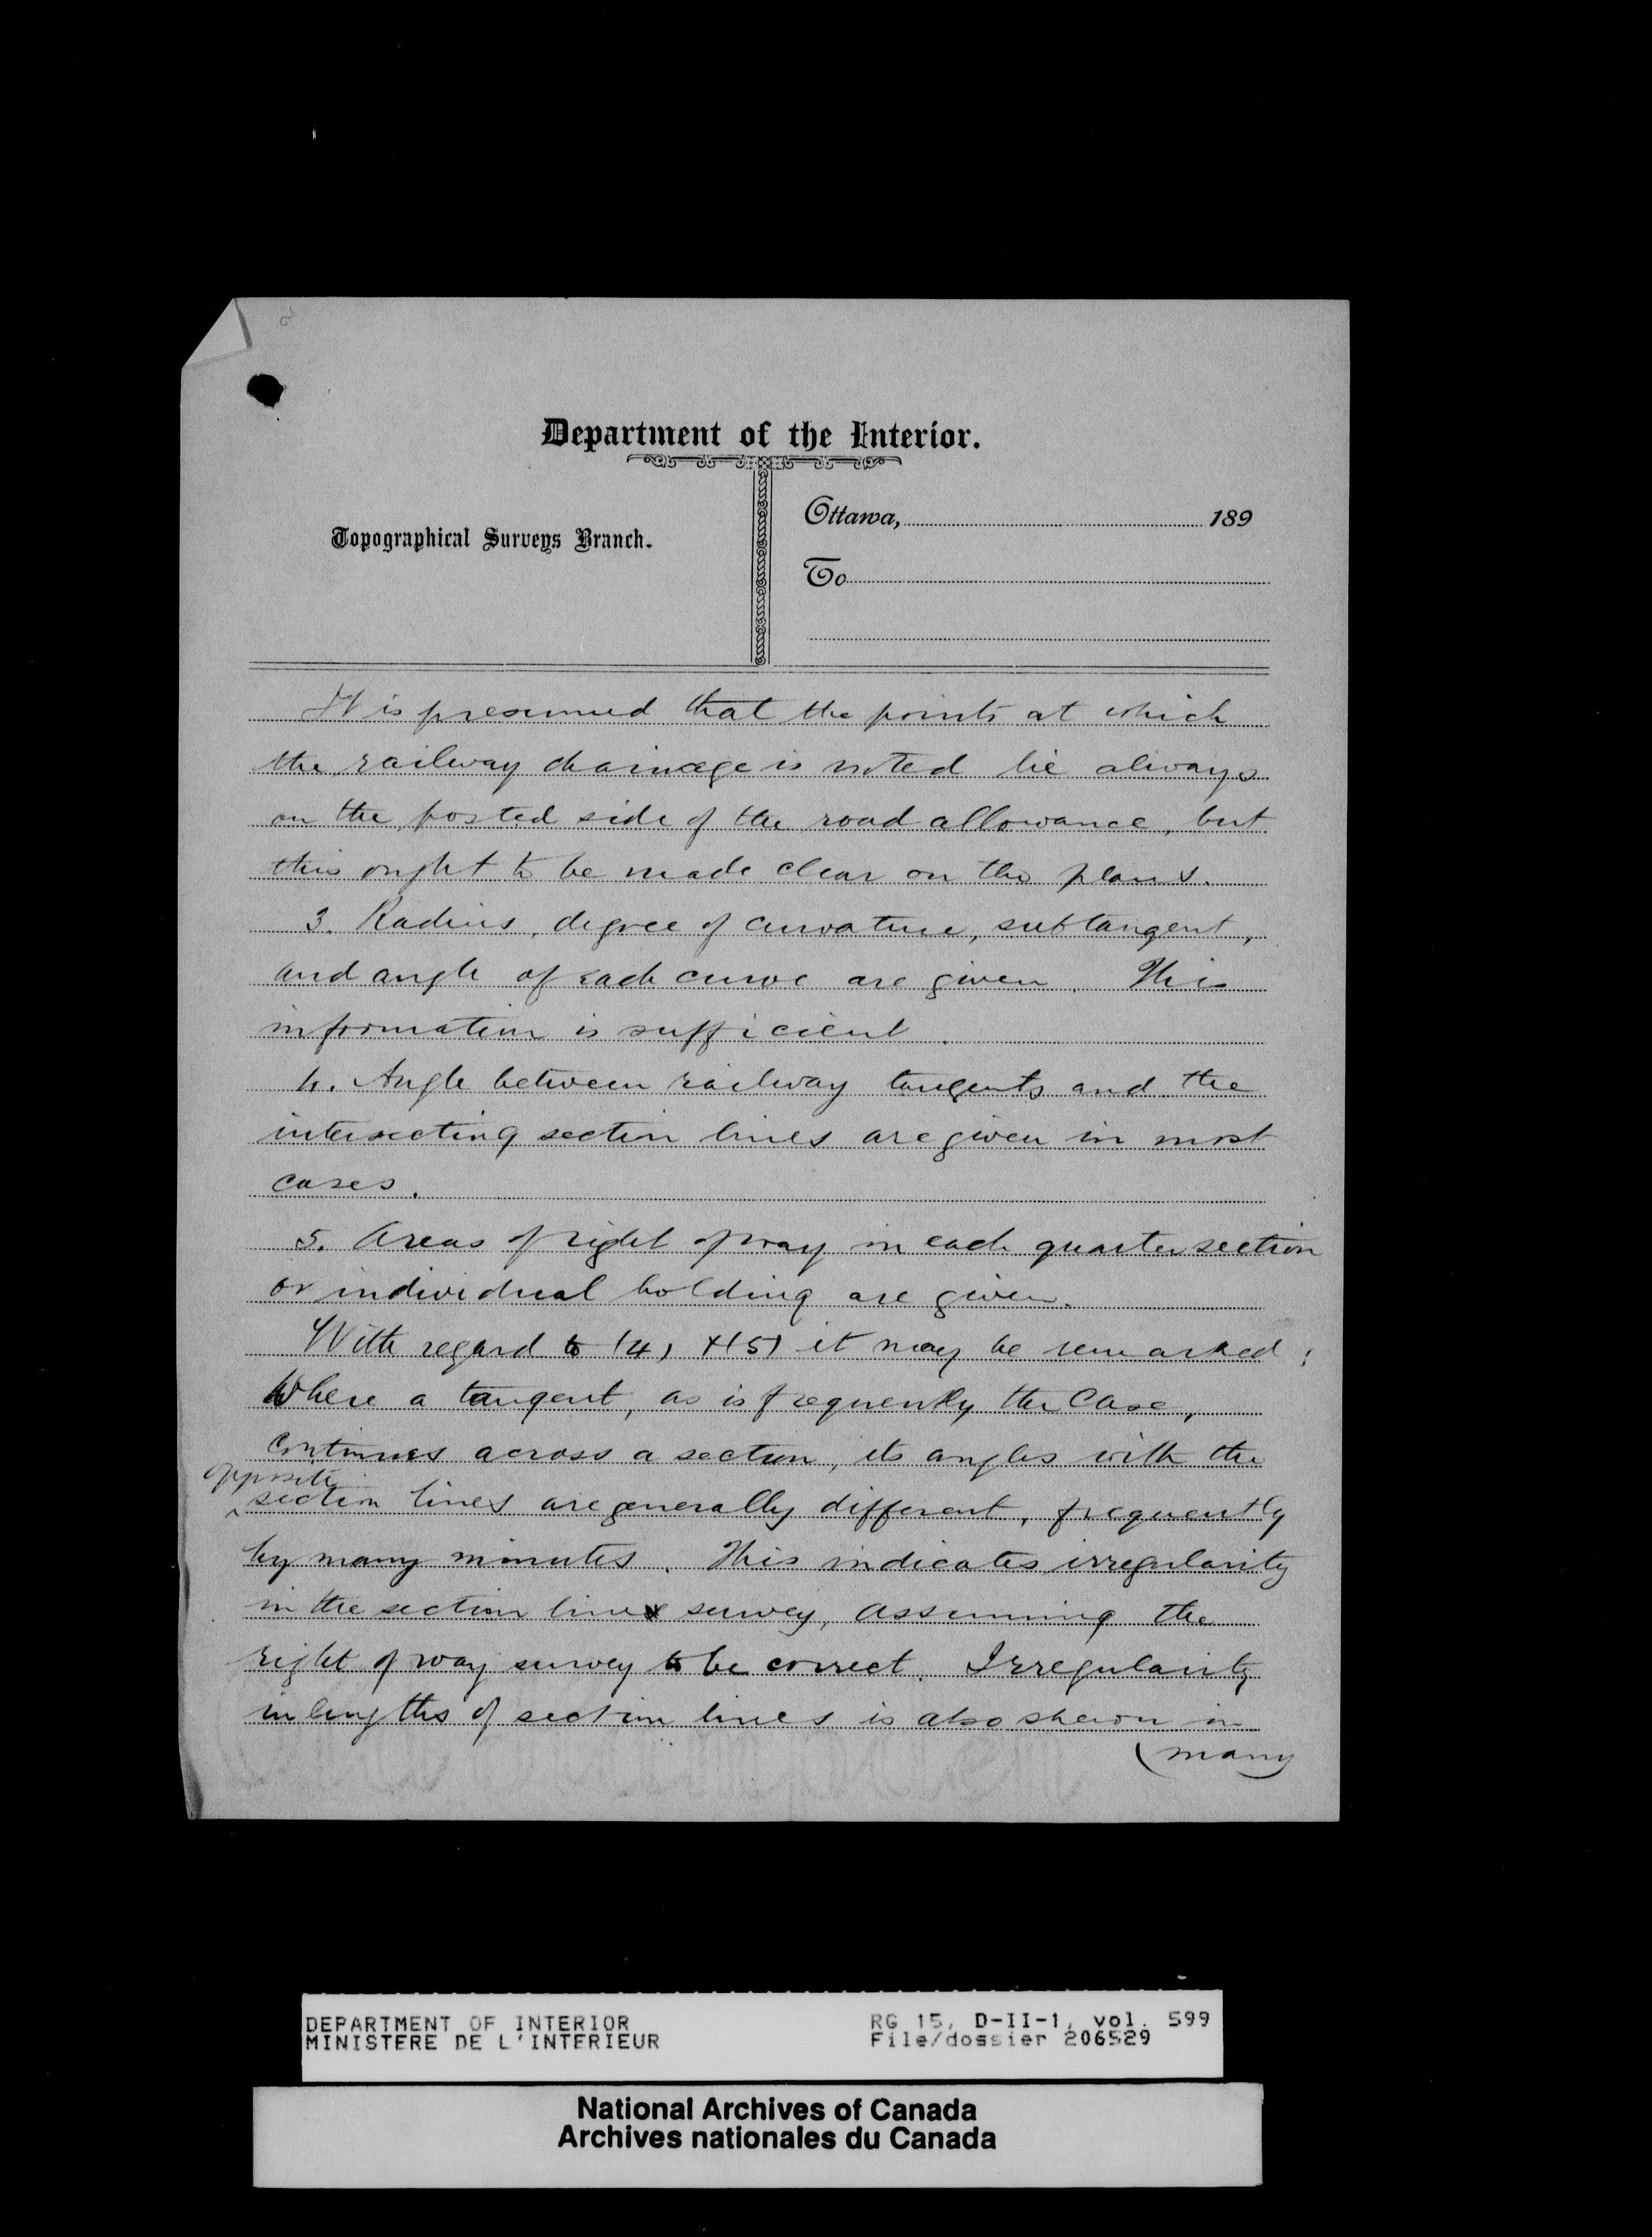 2
Department of the Interior.
Topographical Surveys Branch.
Ottawa, 189
To
It is presumed that the points at which
the railway chainage is noted lie always
on the posted side of the road allowance, but
this ought to be made clear on the plans.
3. Radius, degree of curvature, subtangent,
and angle of each curve are given. This
information is sufficient.
4. Angle between railway tangents and the
intersecting section lines are given in most
cases.
5. Areas of right of way in each quarter section
or individual holding are given.
With regard to (4) & (5) it may be remarked:
Where a tangent, as is frequently the case,
continues across a section, its angles with the
opposite
section lines are generally different, frequently
by many minutes. This indicates irregularity
in the section line survey, assuming the
right of way survey to be correct. Irregularity
in lengths of section lines is also shewn in
(many
DEPARTMENT OF INTERIOR RG 15, D-II-1, vol. 599
MINISTERE DE L'INTERIEUR File/dossier 206529
National Archives of Canada
Archives nationales du Canada